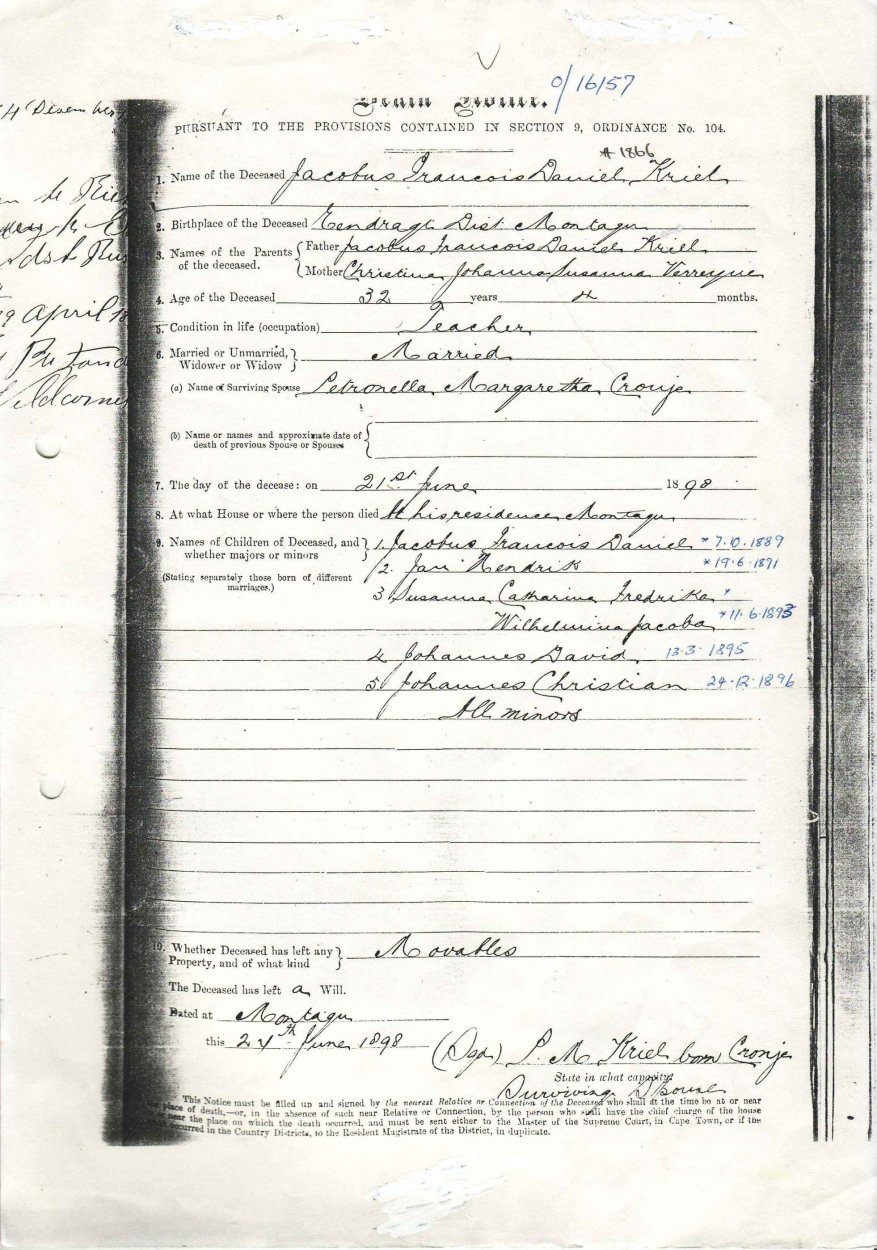 0/16/57
Death Notice.
PURSUANT TO THE PROVISIONS CONTAINED IN SECTION 9, ORDINANCE No. 104.
* 1866
1. Name of the Deceased Jacobus Francois Daniel Kriel
2. Birthplace of the Deceased Eendragt Dist. Montagu
3. Names of the Parents of the deceased. Father Jacobus Francois Daniel Kriel
Mother Christina Johanna Susanna Verreyne
4. Age of the Deceased 32 years 4 months.
5. Condition in life (occupation) Teacher
6. Married or Unmarried, Widower or Widow Married
(a) Name of Surviving Spouse Petronella Margaretha Cronje
(b) Name or names and approximate date of death of previous Spouse or Spouses
7. The day of the decease: on 21st June 1898
8. At what House or where the person died At his residence Montagu
9. Names of Children of Deceased, and whether majors or minors 1. Jacobus Francois Daniel * 7.10.1889
2. Jan Hendrik * 19.6.1871
(Stating separately those born of different marriages.)
3 Susanna Catharina Fredrika *
Wilhelmina Jacoba * 11.6.1893
4 Johannes David 13.3.1895
5 Johannes Christian 24.12.1896
All minors
10. Whether Deceased has left any Property, and of what kind Movables
The Deceased has left a Will.
Dated at Montagu
this 24th June 1898
(Sgd) P. M. Kriel born Cronje
State in what capacity
Surviving Spouse
This Notice must be filled up and signed by the nearest Relative or Connection of the Deceased who shall at the time be at or near
place of death,—or, in the absence of such near Relative or Connection, by the person who shall have the chief charge of the house
near the place on which the death occurred, and must be sent either to the Master of the Supreme Court, in Cape Town, or if the
occurred in the Country Districts, to the Resident Magistrate of the District, in duplicate.
9 April